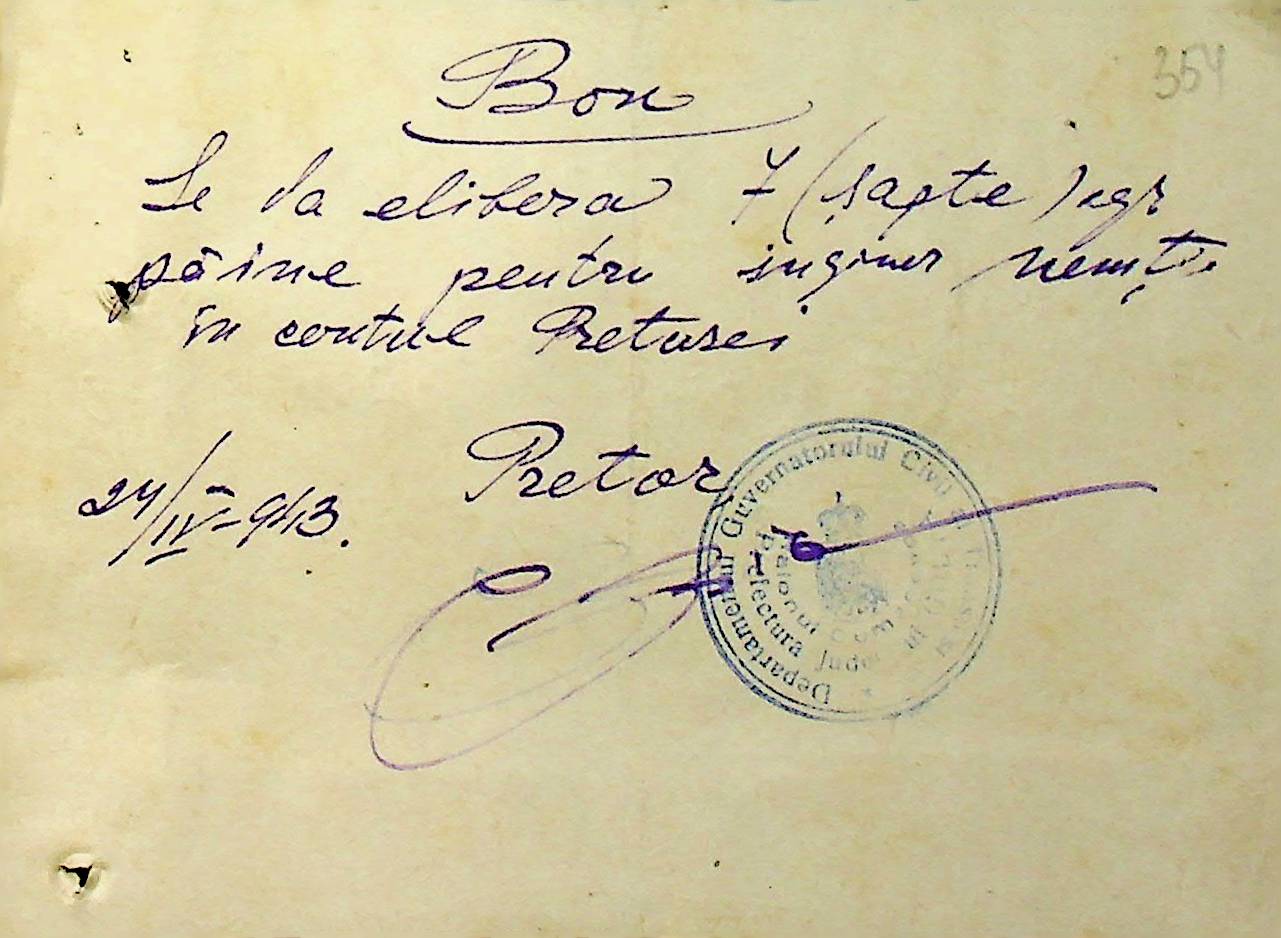 354
Bon
Se va elibera 7 (șapte) kgr
pâine pentru inginer nemți
în contul Preturei
24/IV-943.
Pretor
Departamentul Guvernatorului Civil
Prefectura Jude
Raionul